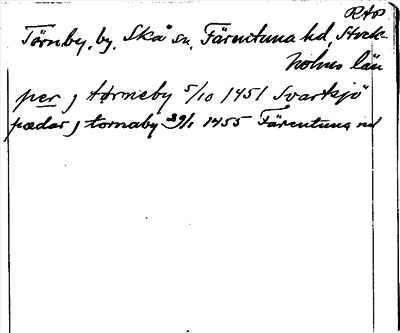 RAP
Törnby, by, Skå sn, Färentuna hd, Stock-
holms län
per j tørneby 5/10 1451 Svartsjö
pædar j tornaby 29/1 1455 Färentuna hd